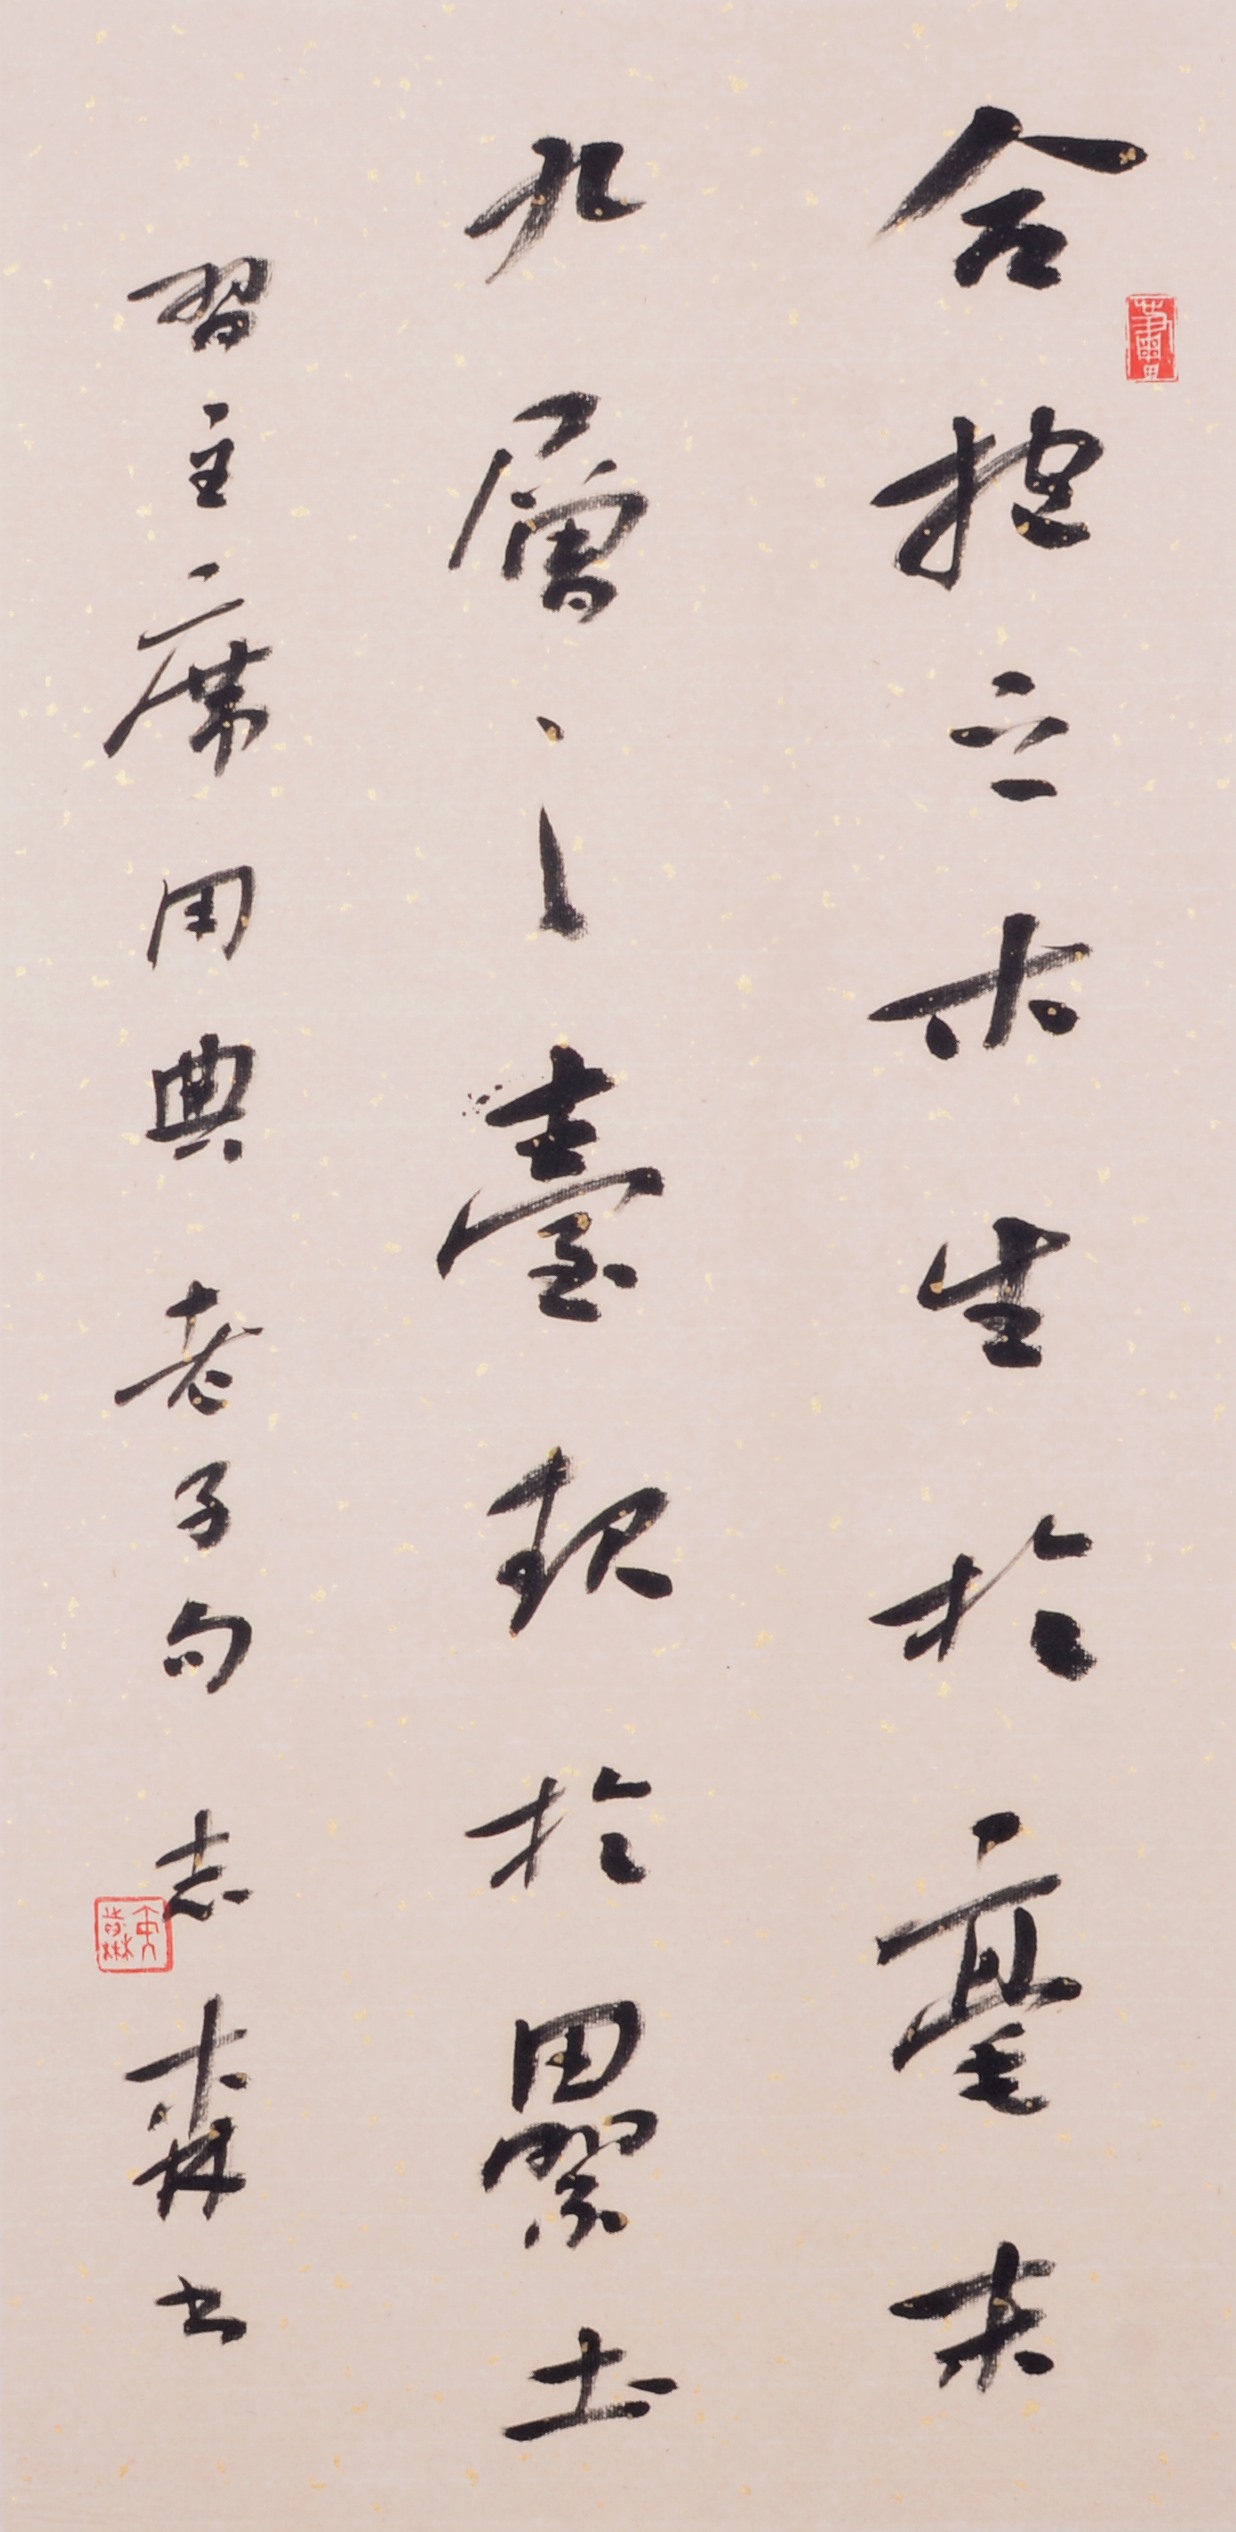 合抱之木生於毫末
九層之臺起於累土
習主席用典老子句志森书